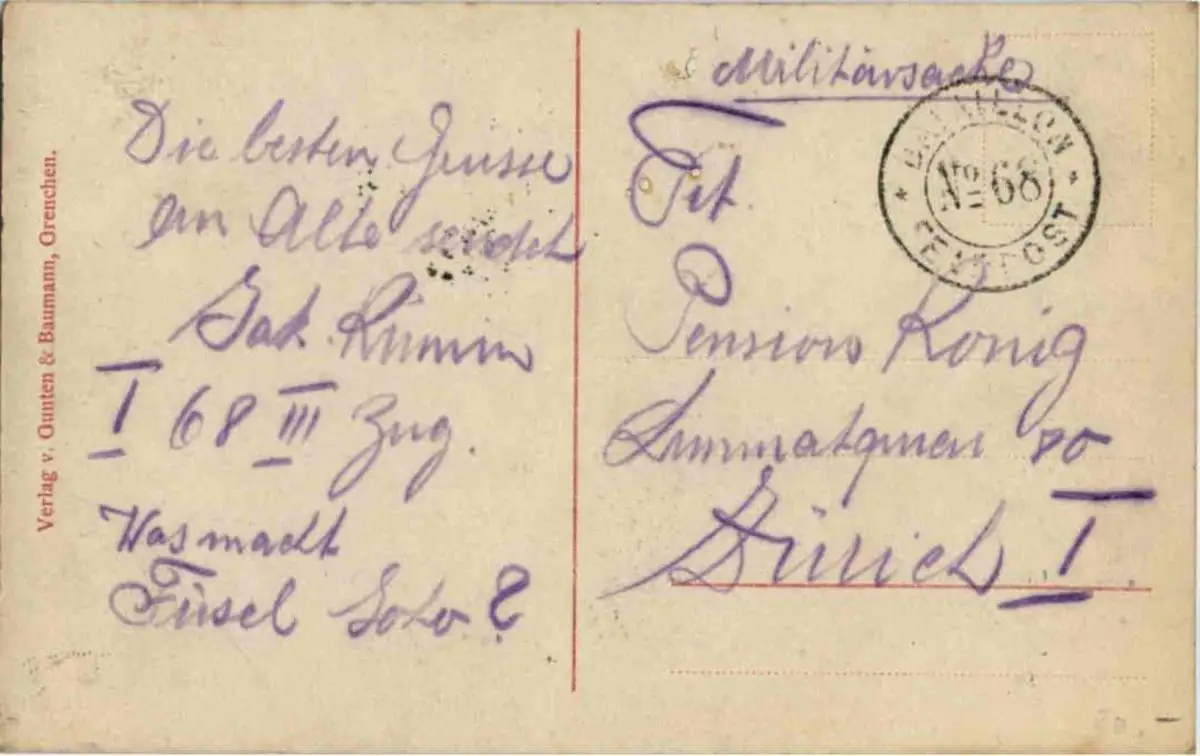 Verlag v. Gunten & Baumann, Grenchen.
Die besten Grüsse
an Alte sendet
Jak.
I 68 III Zug.
Was macht
Füsel
Militärsache
BATAILLON
No 68
FELDPOST
Tit.
Pension König
Limmatquai 80
Zürich I